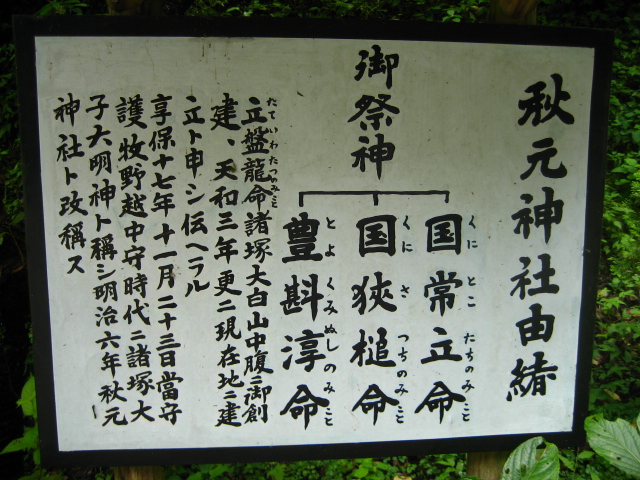 秋元神社由緒
御祭神
国常立命
くにとこたちのみこと
国狭槌命
くにさつちのみこと
豊斟渟命
とよくみぬしのみこと
立盤龍命諸塚大白山中腹ニ御創
たていわたつのみこと
建、天和三年更ニ現在地ニ建
立ト申シ伝ヘラル
享保十七年十一月二十三日當守
護牧野越中守時代ニ諸塚大
子大明神ト稱シ明治六年秋元
神社ト改稱ス